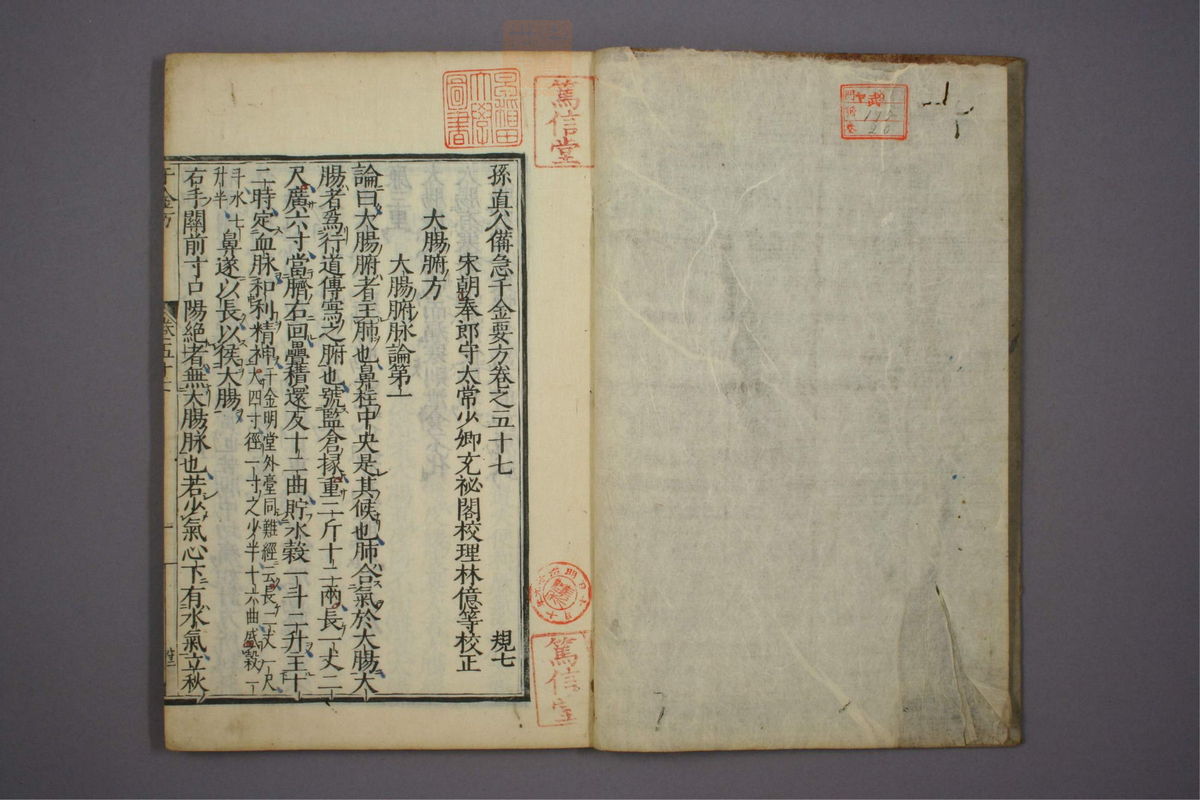 孫真人備急千金要方卷之五十七　規七
宋朝奉郎守太常少卿充祕閣校理林億等校正
大腸腑方
大腸腑脉論第一
論曰大腸腑者主肺也鼻柱中央是其候也肺合氣於大腸大
腸者爲行道傳寫之腑也號監倉掾重二斤十二兩長一丈二
尺廣六寸當臍右回疊積還反十二曲貯水穀一斗二升主十
二時定血脉和利精神千金明堂外臺同難經云長二丈一尺
大四寸徑一寸之少半十六曲盛穀一
斗水七
升半鼻遂以長以候大腸
右手關前寸口陽絶者無大腸脉也若少氣心下有水氣立秋
千金方
卷五十七
一
篤信堂
篤信堂
早稻田
大學
圖書